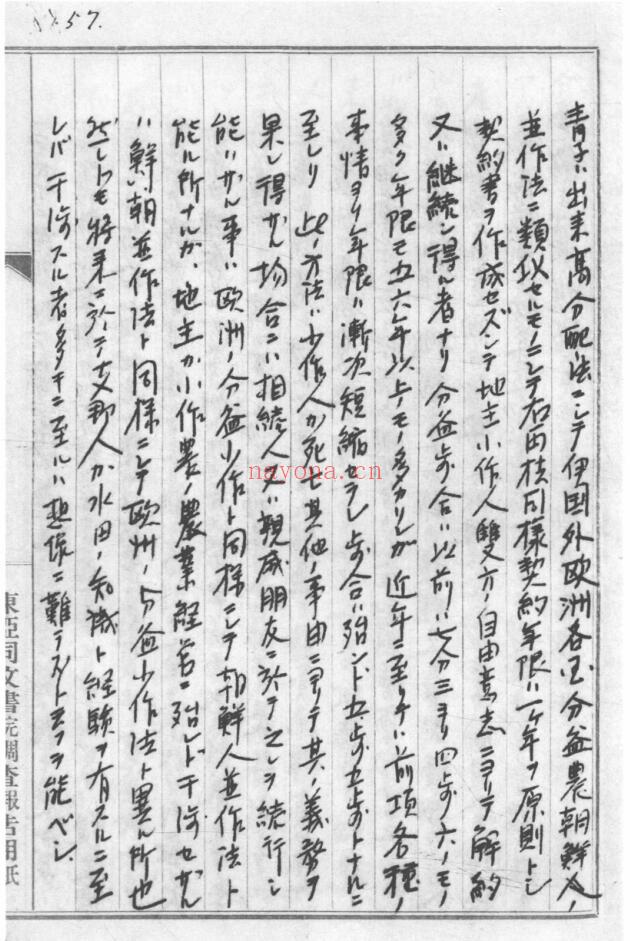 57.
青子ハ出来高分配法ニシテ伊国外欧洲各国分益農朝鮮人ノ
並作法ニ類似セルモノニシテ右両様同様契約年限ハ一ケ年ヲ原則トシ
契約書ヲ作成セズシテ地主小作人雙方ノ自由意志ニヨリテ解約
又ハ継続シ得ル者ナリ分益歩合ハ以前ハ七分三ヨリ四歩六ノモノ
多ク年限モ五六年以上ノモノ多カリシガ近年ニ至リテハ前項各種ノ
事情ヨリ年限ハ漸次短縮セラレ歩合ハ殆ンド五歩五歩トナルニ
至レリ此ノ方法ハ小作人カ死亡其他ノ事由ニヨリテ其ノ義務ヲ
果シ得サル場合ニハ相続人又ハ親戚朋友ニ於テ之レヲ続行シ
能ハサル事ハ欧洲ノ分益小作ト同様ニシテ朝鮮人並作法ト
能ル所ナルカ、地主カ小作農ノ農業経営ニ殆レド干渉セサル
ハ鮮人朝並作法ト同様ニシテ欧州ノ分益小作法ト異ル所也
然レドモ将来ニ於テ支那人カ水田ノ知識ト経験ヲ有スルニ至
レバ干渉スル者多キニ至ルハ想像ニ難カラズト云フヲ能ベシ
東亞同文書院調査報告用紙
navona.cn